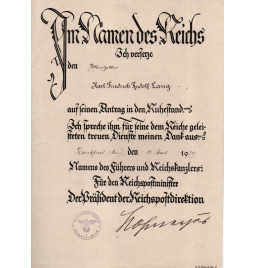 Im Namen des Reichs
Ich versetze
den
Karl Friedrich Rudolf Lang
auf seinen Antrag in den Ruhestand.
Ich spreche ihm für seine dem Reiche gelei-
steten treuen Dienste meinen Dank aus.
den
Namens des Führers und Reichskanzlers:
Für den Reichspostminister
Der Präsident der Reichspostdirektion